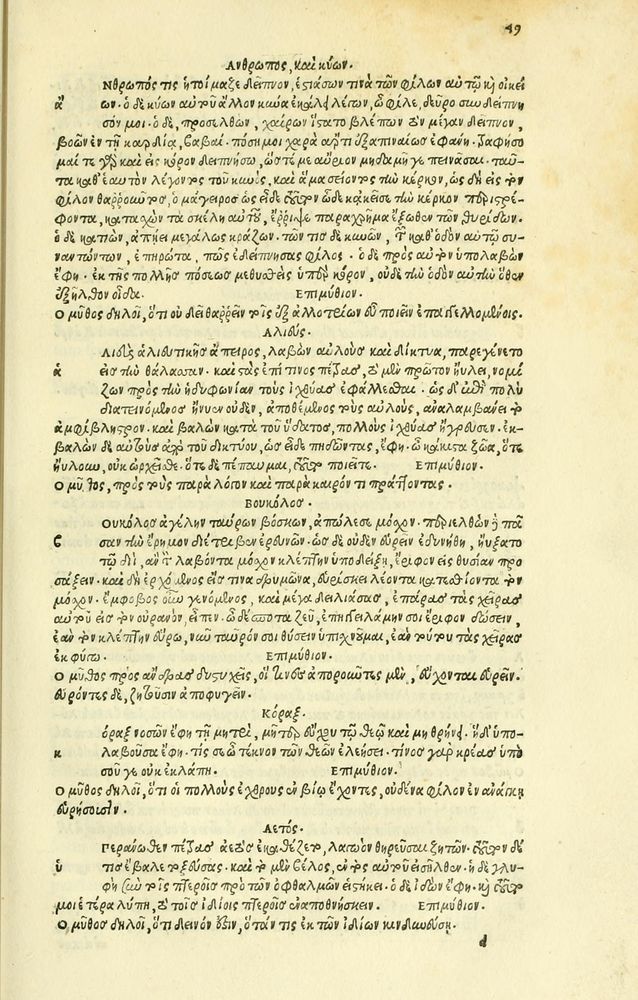 49
Ἄνθρωπος, καὶ κύων.
Νθρωπός τις ἡτοίμαζε δεῖπνον, ἑστιάσων τινὰ τῶν φίλων αὐτῷ κὴ οἰκεί
ἄ ων. ὁ δὲ κύων αὐτοῦ ἄλλον κύνα ἐκάλει λέγων, ὦ φίλε, δεῦρο συνδείπνη
σόν μοι. ὁ δὲ, προσελθὼν, χαίρων ἵστατο βλέπων τὸν μέγαν δεῖπνον,
βοῶν ἐν τῇ καρδίᾳ, βαβαὶ. πόση μοι χαρὰ ἄρτι ἐξαπιναίως ἐφάνη. τραφήσο
μαί τε γὸ καὶ εἰς κόρον δειπνήσω, ὥστέ με αὔριον μηδαμῇ γε πεινάσαι. ταῦ-
τα καθ' ἑαυτὸν λέγοντος τοῦ κυνὸς, καὶ ἅμα σείοντος τὴν κέρκον, ὡς δὴ εἰς τὸν
φίλον θαρροῦντος, ὁ μάγειρος ὡς εἶδε τοῦτον ὧδε κἀκεῖσε τὴν κέρκον περιστρέ-
φοντα, κατασχὼν τὰ σκέλη αὐτοῦ, ἔρριψε παραχρῆμα ἔξωθεν τῶν θυρίδων.
ὁ δὲ κατιὼν, ἀπῄει μεγάλως κράζων. τῶν τις δὲ κυνῶν, τῶν καθ' ὁδὸν αὐτῷ συ-
ναντώντων, ἐπηρώτα, πῶς ἐδείπνησας φίλος. ὁ δὲ πρὸς αὐτὸν ὑπολαβὼν
ἔφη. ἐκ τῆς πολλῆς πόσεως μεθυσθεὶς ὑπὲρ κόρον, οὐδὲ τὴν ὁδὸν αὐτὴν ὅθεν
ἐξῆλθον οἶδα. Ἐπιμύθιον.
Ο μῦθος δηλοῖ, ὅτι οὐ δεῖ θαρρεῖν τοῖς ἐξ ἀλλοτρίων εὖ ποιεῖν ἐπαγγελλομένοις.
Ἁλιεύς.
Λιεὺς ἁλιευτικῆς ἄπειρος, λαβὼν αὐλοὺς καὶ δίκτυα, παρεγένετο
ἁ εἰς τὴν θάλασσαν. καὶ στὰς ἐπί τινος πέτρας, τὸ μὲν πρῶτον ηὔλει, νομί
ζων πρὸς τὴν ἡδυφωνίαν τοὺς ἰχθύας ἐφάλλεσθαι. ὡς δ' ἐπὶ πολὺ
διατεινόμενος ἤνυεν οὐδὲν, ἀποθέμενος τοὺς αὐλοὺς, ἀναλαμβάνει τὸ
ἀμφίβληστρον. καὶ βαλὼν κατὰ τοῦ ὕδατος, πολλοὺς ἰχθύας ἤγρευσεν. ἐκ-
βαλὼν δὲ αὐτοὺς ἀπὸ τοῦ δικτύου, ὡς εἶδε πηδῶντας, ἔφη. ὦ κάκιστα ζῶα, ὅτε
ηὔλουν, οὐκ ὠρχεῖσθε. ὅτε δὲ πέπαυμαι, τοῦτο ποιεῖτε. Ἐπιμύθιον.
Ο μῦθος, πρὸς τοὺς παρὰ λόγον καὶ παρὰ καιρόν τι πράττοντας.
Βουκόλος.
Ουκόλος ἀγέλην ταύρων βόσκων, ἀπώλεσε μόσχον. περιελθὼν δὲ πᾶ
β σαν τὴν ἔρημον διέτριβεν ἐρευνῶν. ὡς δὲ οὐδὲν εὑρεῖν ἐδυνήθη, ηὔξατο
τῷ διὶ, ἂν τὸν λαβόντα μόσχον κλέπτην ὑποδείξῃ, ἔριφον εἰς θυσίαν προ
σάξειν. καὶ δὴ ἐρχόμενος εἴς τινα δρυμῶνα, εὑρίσκει λέοντα κατεσθίοντα τὸν
μόσχον. ἔμφοβος οὖν γενόμενος, καὶ μέγα δειλιάσας, ἐπάρας τὰς χεῖρας
αὐτοῦ εἰς τὸν οὐρανὸν, εἶπεν. ὦ δέσποτα ζεῦ, ἐπηγγειλάμην σοι ἔριφον δώσειν,
ἐὰν τὸν κλέπτην εὕρω, νῦν ταῦρόν σοι θύσειν ὑπισχνοῦμαι, ἐὰν τούτου τὰς χεῖρας
ἐκφύγω. Ἐπιμύθιον.
Ο μῦθος πρὸς ἄνδρας δυστυχεῖς, οἵ τινες ἀποροῦντες μὲν, εὔχονται εὑρεῖν.
εὑρόντες δὲ, ζητοῦσιν ἀποφυγεῖν.
Κόραξ.
όραξ νοσῶν ἔφη τῇ μητρὶ, μῆτερ εὔχου τῷ θεῷ καὶ μὴ θρήνει. ἡ δ' ὑπο-
κ λαβοῦσα ἔφη. τίς σε ὦ τέκνον τῶν θεῶν ἐλεήσει. τίνος γὰρ κρέας ὑπὸ
σοῦ γε οὐκ ἐκλάπη. Ἐπιμύθιον.
Ο μῦθος δηλοῖ, ὅτι οἱ πολλοὺς ἐχθροὺς ἐν βίῳ ἔχοντες, οὐδένα φίλον ἐν ἀνάγκῃ
εὑρήσουσιν.
Ἀετός.
Περάνωθεν πέτρας ἀετὸς ἐκαθέζετο, λαγωὸν θηρεῦσαι ζητῶν. τοῦτον δέ
ὑ τις ἔβαλε τοξεύσας. καὶ τὸ μὲν βέλος, ἐντὸς αὐτοῦ εἰσῆλθεν. ἡ δὲ γλυ-
φὴ σὺν τοῖς πτεροῖς πρὸ τῶν ὀφθαλμῶν εἱστήκει. ὁ δὲ ἰδὼν ἔφη. κὴ τοῦτό
μοι ἑτέρα λύπη, τὸ τοῖς ἰδίοις πτεροῖς ἐναποθνήσκειν. Ἐπιμύθιον.
Ο μῦθος δηλοῖ, ὅτι δεινόν ἐστιν, ὅταν τις ἐκ τῶν ἰδίων κινδυνεύσῃ.
d